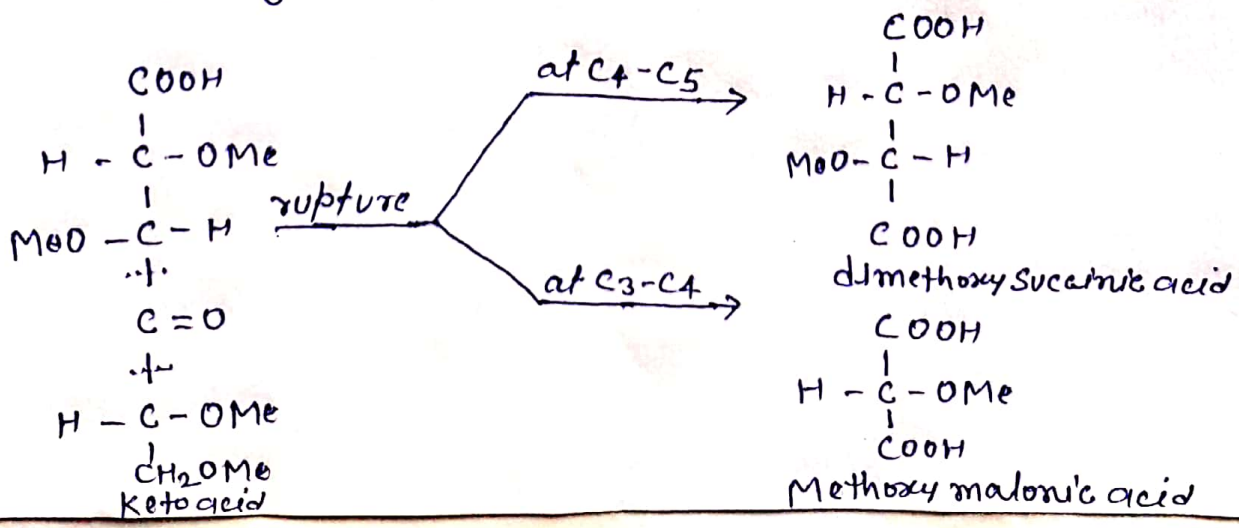 COOH
H - C - OMe
MeO - C - H
C = O
H - C - OMe
CH₂OMe
Keto acid
rupture
at C4-C5
COOH
H - C - OMe
MeO - C - H
COOH
dimethoxy Succinic acid
at C3-C4
COOH
H - C - OMe
COOH
Methoxy malonic acid